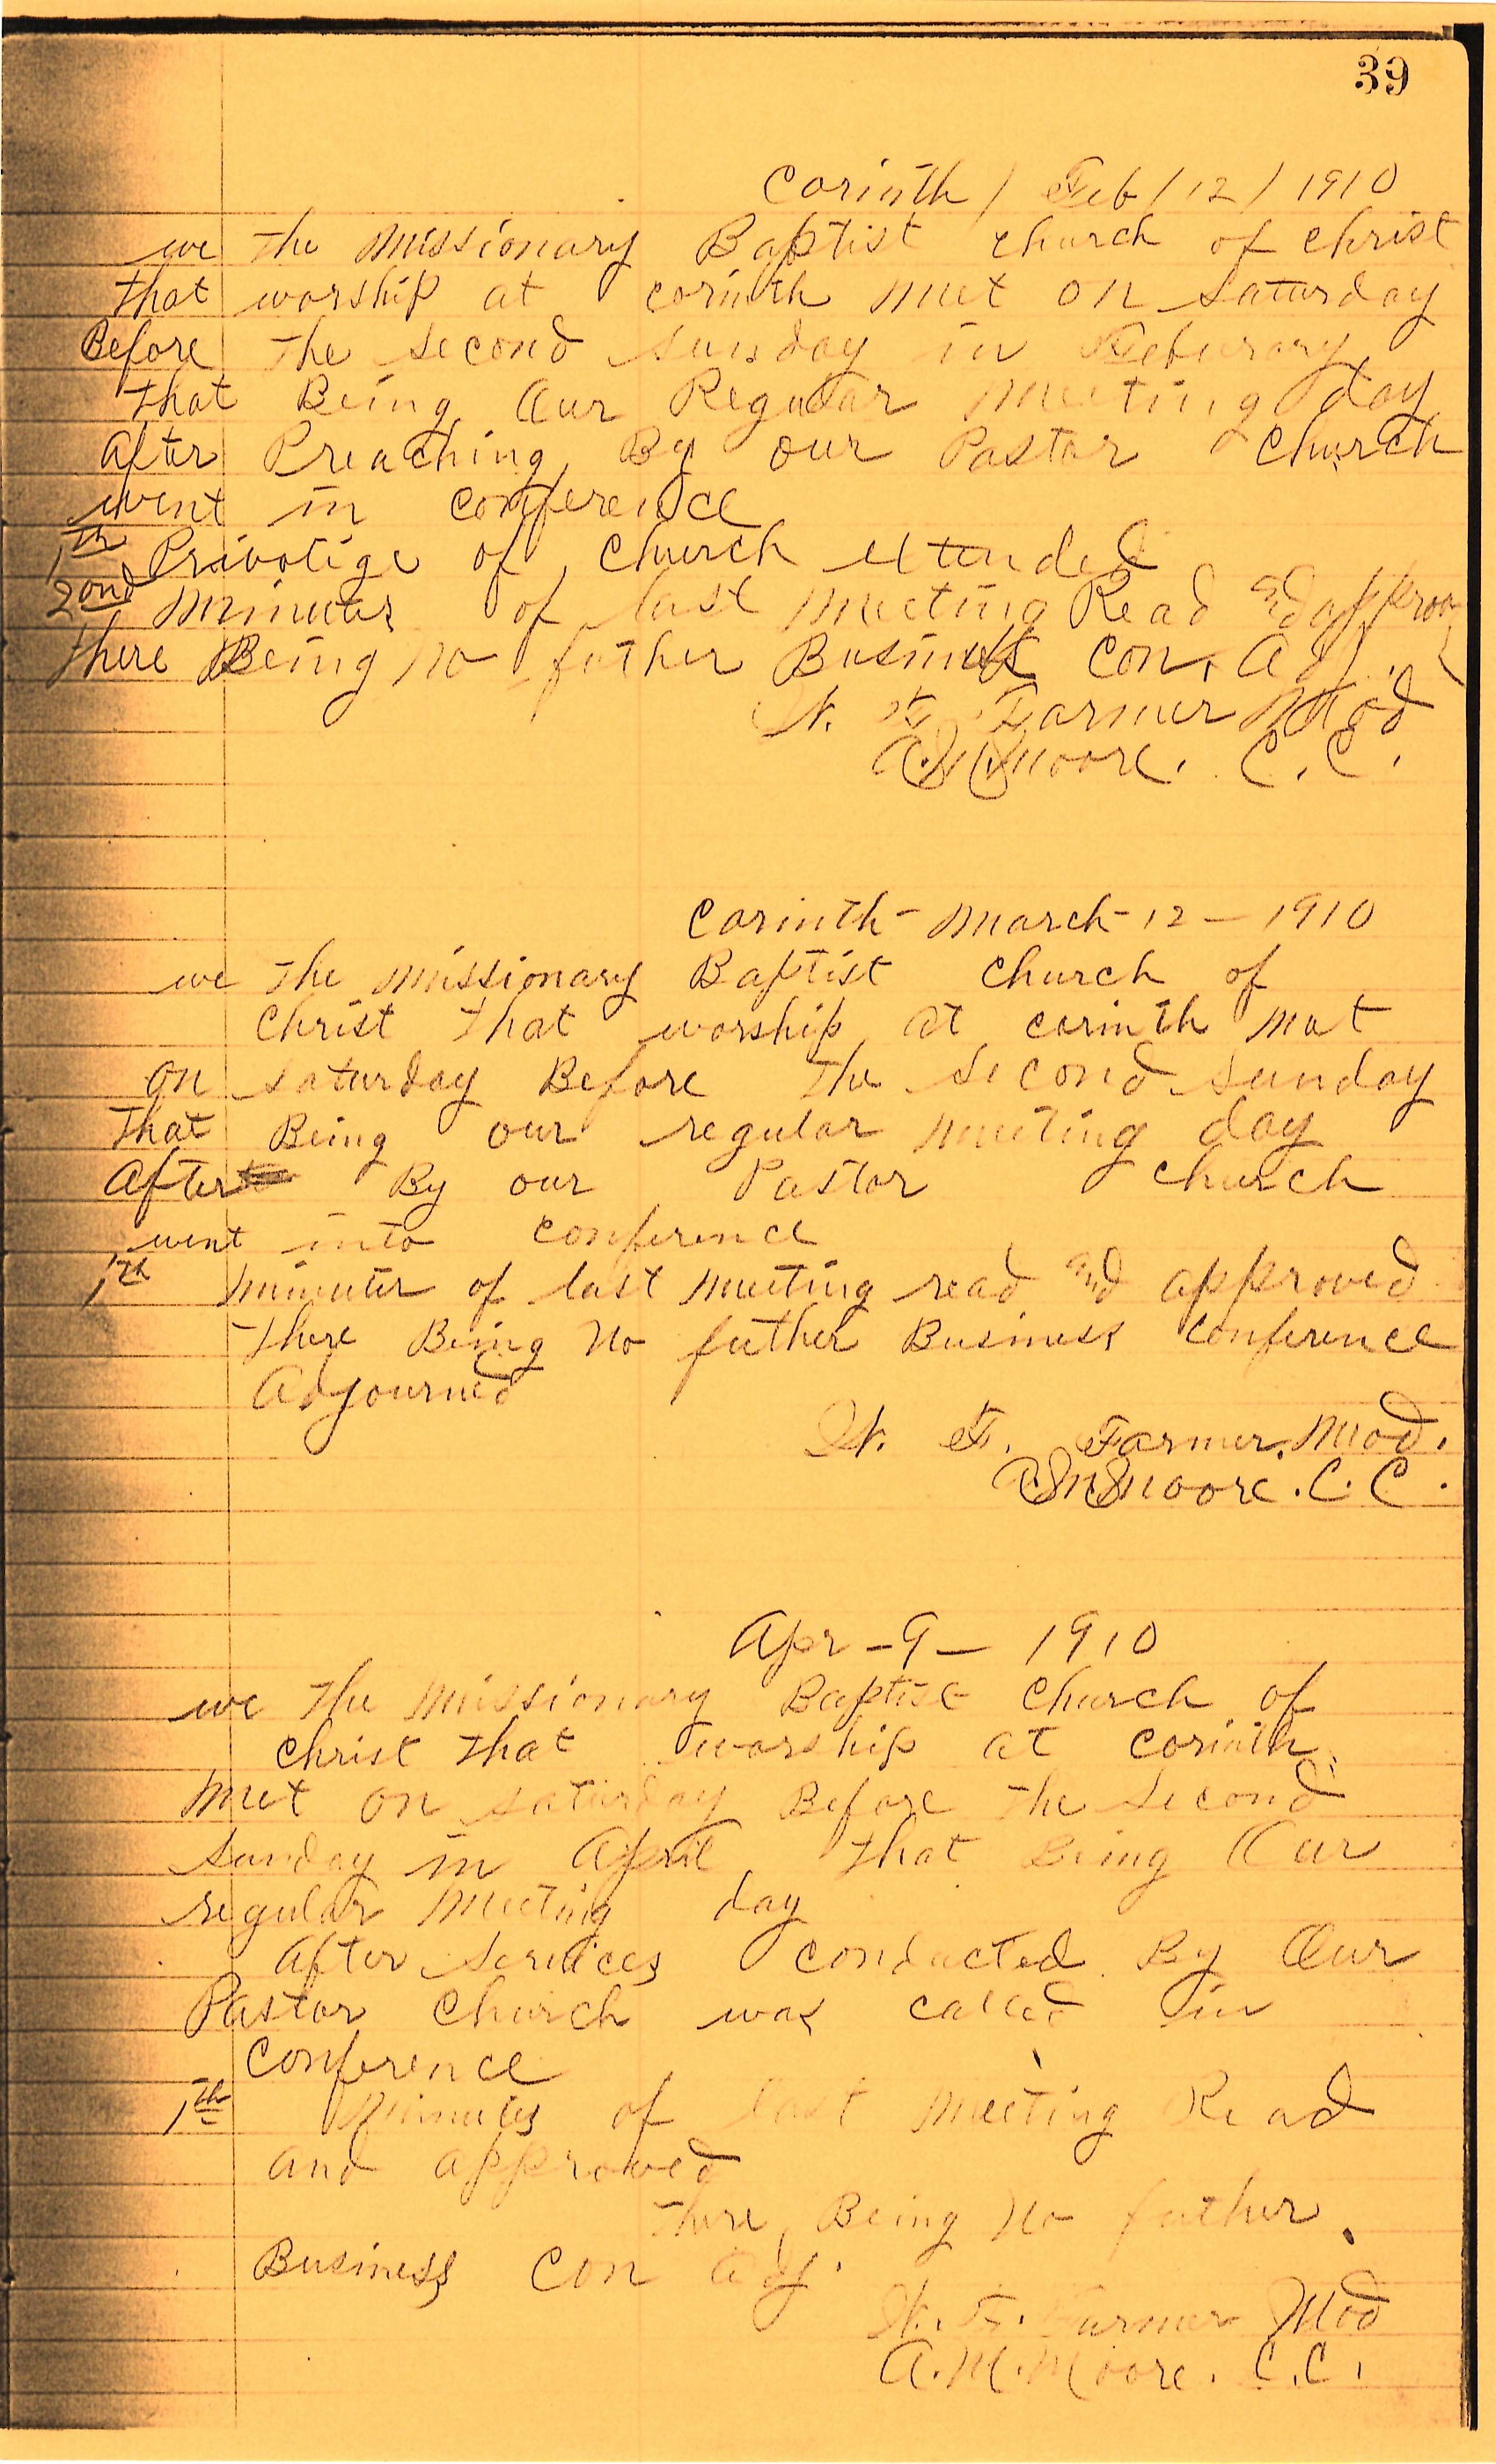 39
Corinth / Feb / 12 / 1910
we the missionary Baptist church of christ
that worship at corinth met on saturday
Before the second sunday in Feburary
that Being our Regular meeting day
After Preaching By our Pastor church
went in conference
1th Privolige of church extended
2ond minutes of last meeting Read and approv
there Being no futher Business con. adj.
W. F. Farmer Mod
A. M. Moore. C. C.
Corinth - march - 12 - 1910
we the missionary Baptist church of
christ that worship at corinth mat
on saturday Before the second sunday
that Being our regular meeting day
After By our Pastor church
went into conference
1th minutes of last meeting read and approved
there Being no futher Business conference
Adjourned
W. F. Farmer. Mod.
A M Moore. C. C.
Apr - 9 - 1910
we the missionary Baptist church of
christ that worship at corinth
met on saturday Before the second
sunday in April that Being our
regular meeting day
After services conducted By our
Pastor church was called in
conference
1th Minutes of last meeting Read
and approved
there Being no futher
Business con adj.
W. F. Farmer Mod
A. M. Moore. C. C.